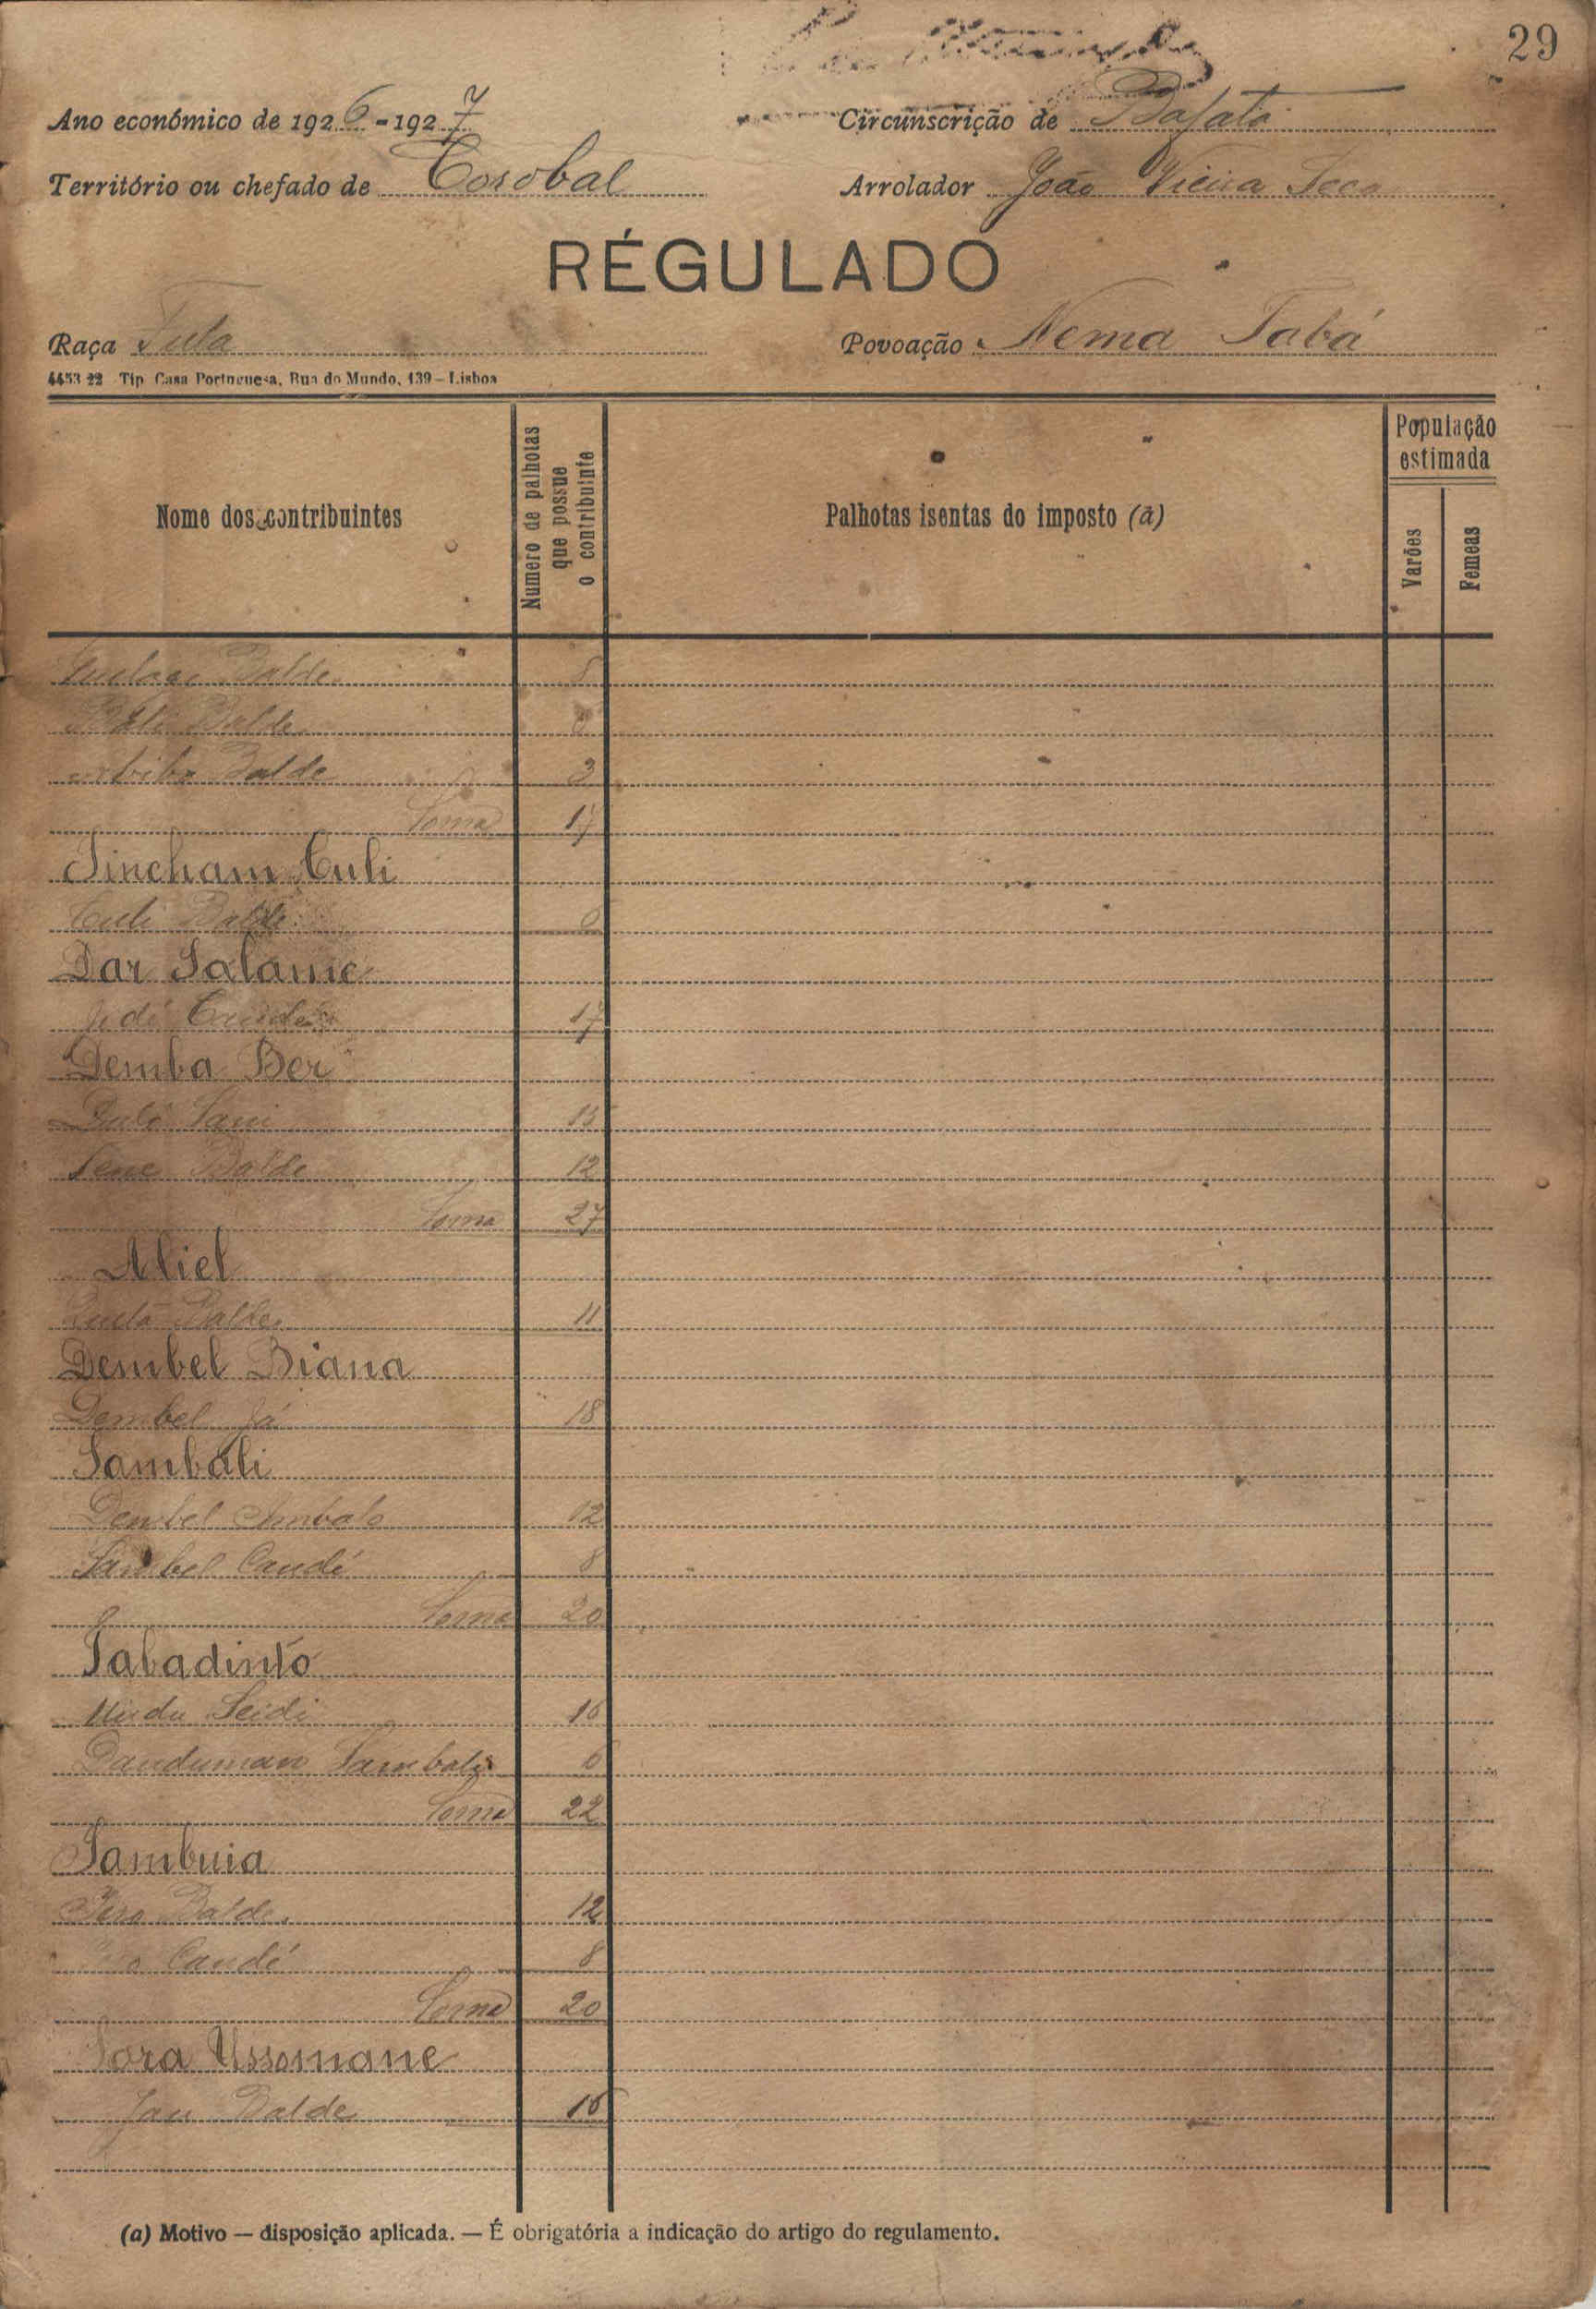 29
Ano económico de 1926-1927 Circunscrição de Bafatá
Território ou chefado de Corobal Arrolador João Vieira Seca
RÉGULADO
Raça Fula Povoação Nema Tabá
4453 22 Tip Casa Portuguesa, Rua do Mundo, 139 – Lisboa
Nome dos contribuintes
Numero de palhotas que possue o contribuinte
Palhotas isentas do imposto (a)
População estimada
Varões
Femeas
Balde
Balde
Balde 3
Soma 17
Sincham Culi
Culi Balde
Dar Salame
17
Demba Ber
15
Sene Balde 12
Soma 27
Aliel
Balde 11
Dembel Biana
Dembel Já 18
Sambali
Dembel Embalo 12
Sambel Candé 8
Soma 20
Sabadinto
Seidi 16
Danduman 6
Soma 22
Sambuia
Balde 12
Candé 8
Soma 20
Sara Ussomane
Balde
(a) Motivo — disposição aplicada. — É obrigatória a indicação do artigo do regulamento.